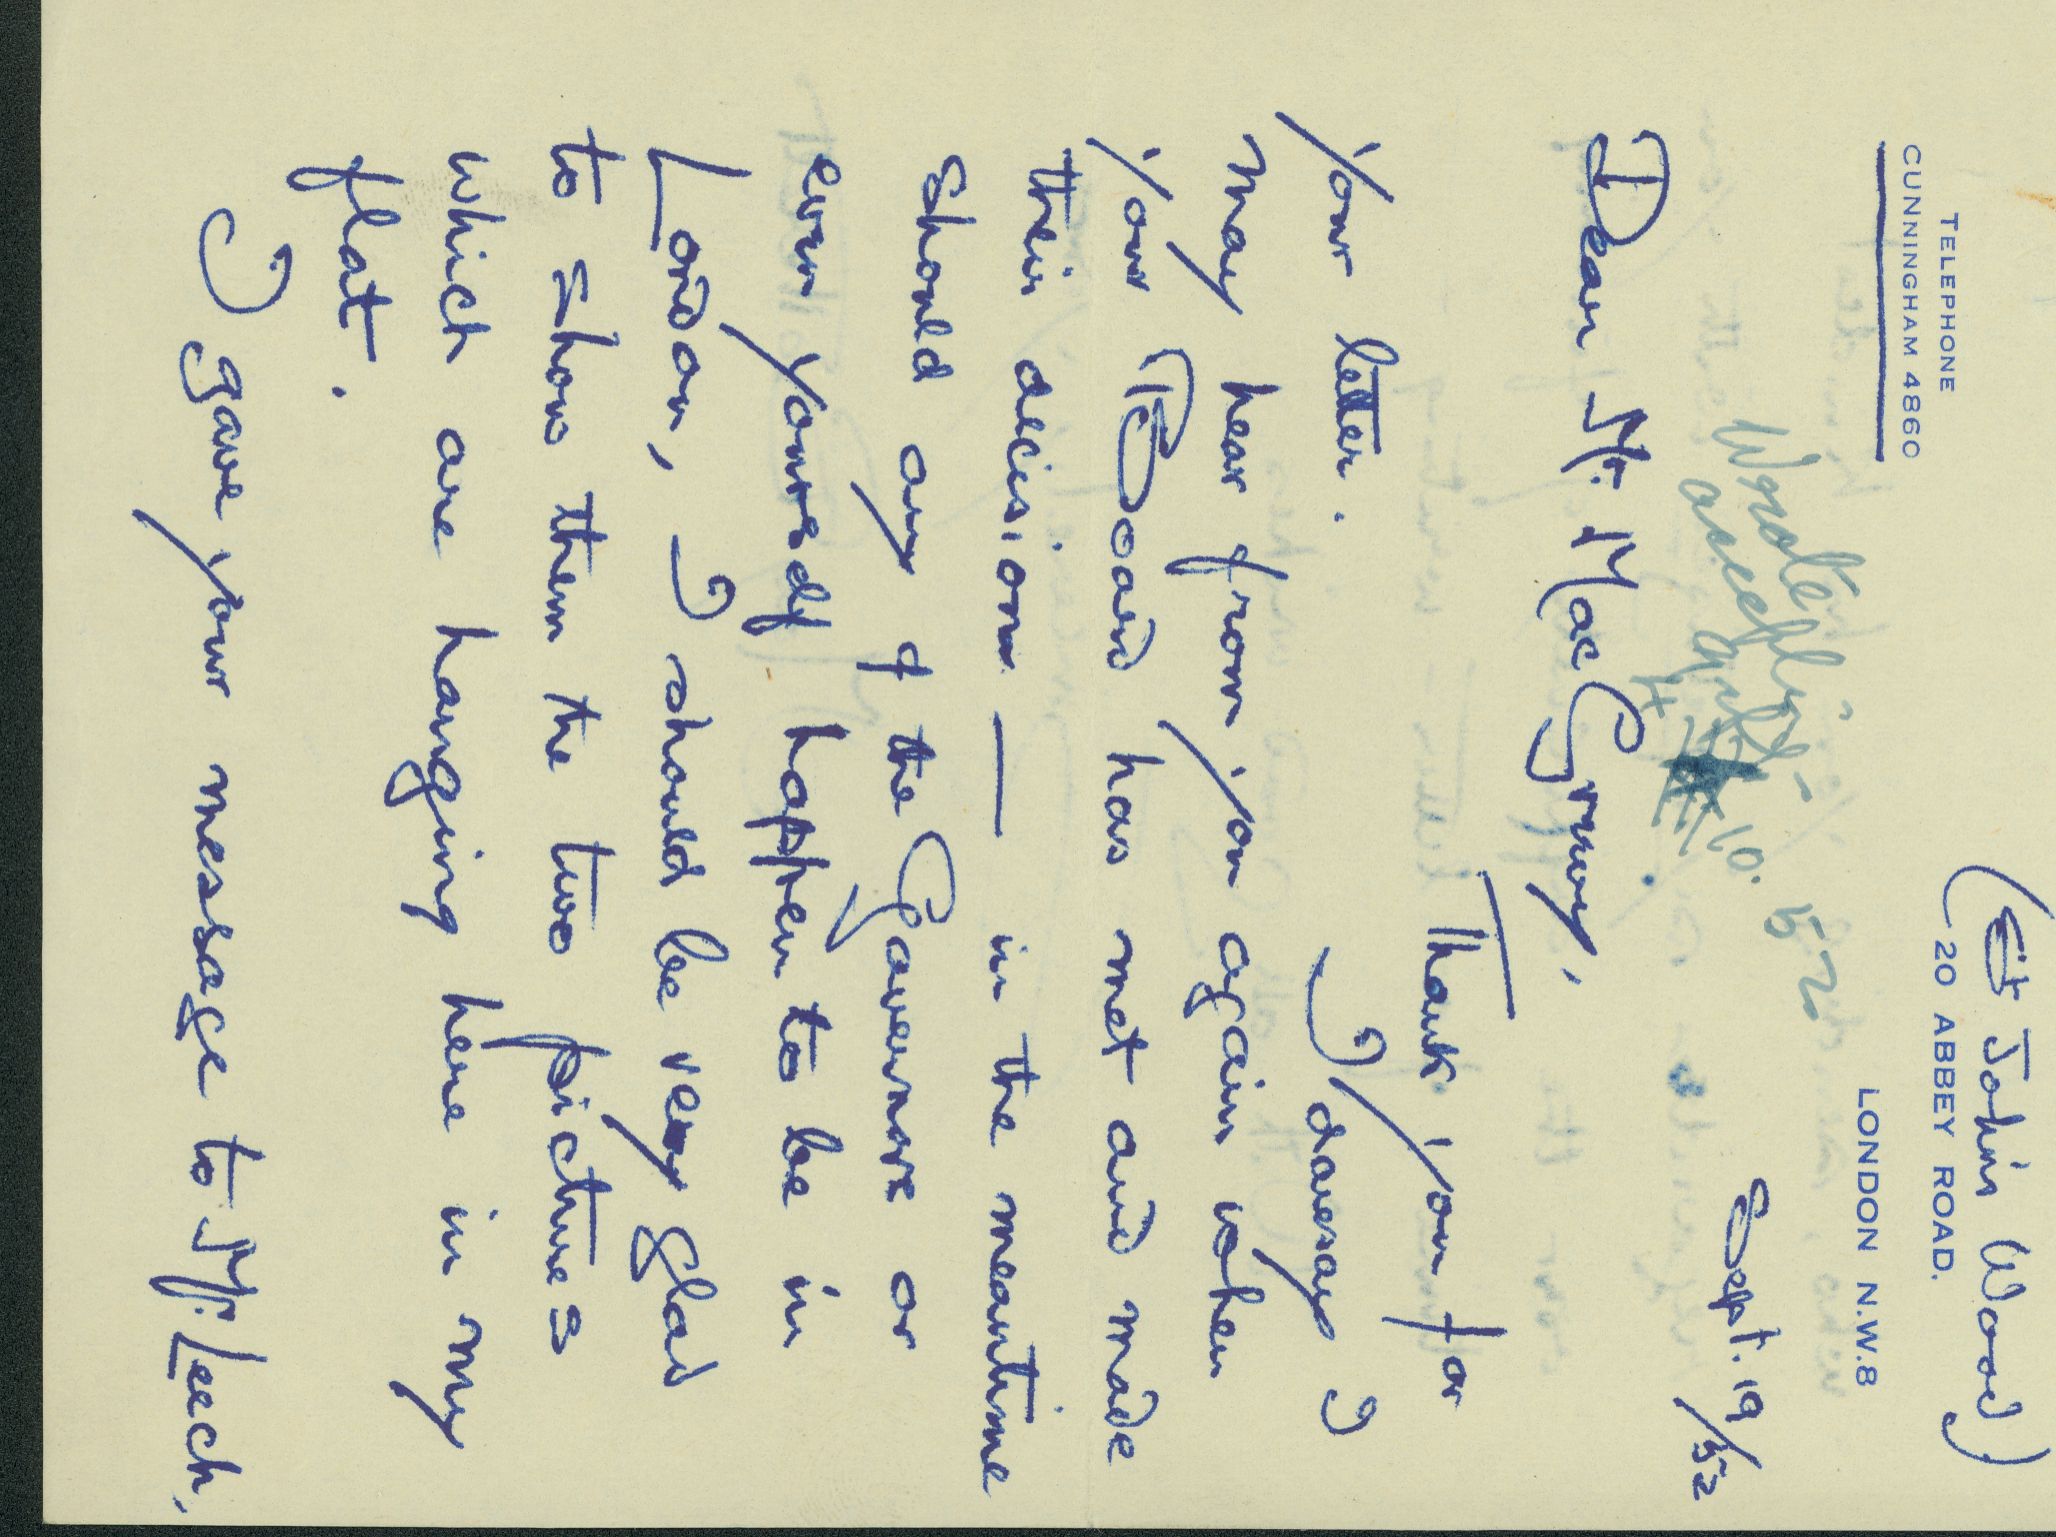 TELEPHONE
CUNNINGHAM 4860
(St John's Wood)
20 ABBEY ROAD.
LONDON N.W.8
Wrote
accepting
gift -
4.10.52
Sept. 19/52
Dear Mr. MacGreevy,
Thank you for
your letter. I daresay I
may hear from you again when
your Board has met and made
their decision — in the meantime
should any of the Governors or
even yourself happen to be in
London, I should be very glad
to show them the two pictures
which are hanging here in my
flat.
I gave your message to Mr. Leech,